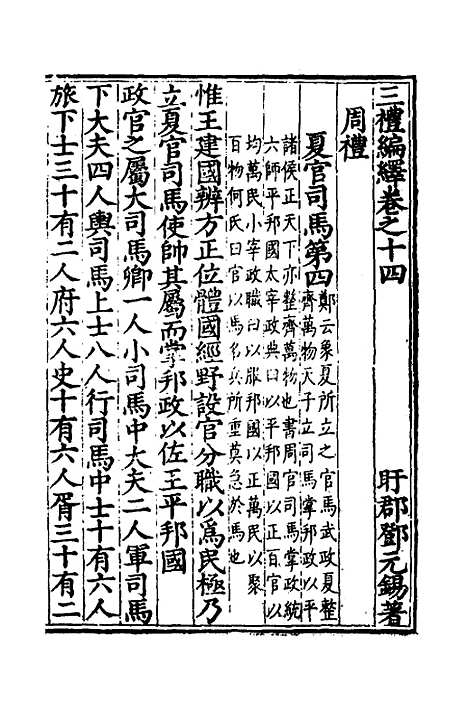 三禮編繹卷之十四　　　　盱郡鄧元錫著
周禮
夏官司馬第四
鄭云象夏所立之官馬武政夏整
齊萬物天子立司馬掌邦政以平
諸侯正天下亦整齊萬物也書周官司馬掌政統
六師平邦國太宰政典曰以平邦國以正百官以
均萬民小宰政職曰以服邦國以正萬民以聚
百物何氏曰官以馬名兵所重莫急於馬也
惟王建國辨方正位體國經野設官分職以爲民極乃
立夏官司馬使帥其屬而掌邦政以佐王平邦國
政官之屬大司馬卿一人小司馬中大夫二人軍司馬
下大夫四人輿司馬上士八人行司馬中士十有六人
旅下士三十有二人府六人史十有六人胥三十有二